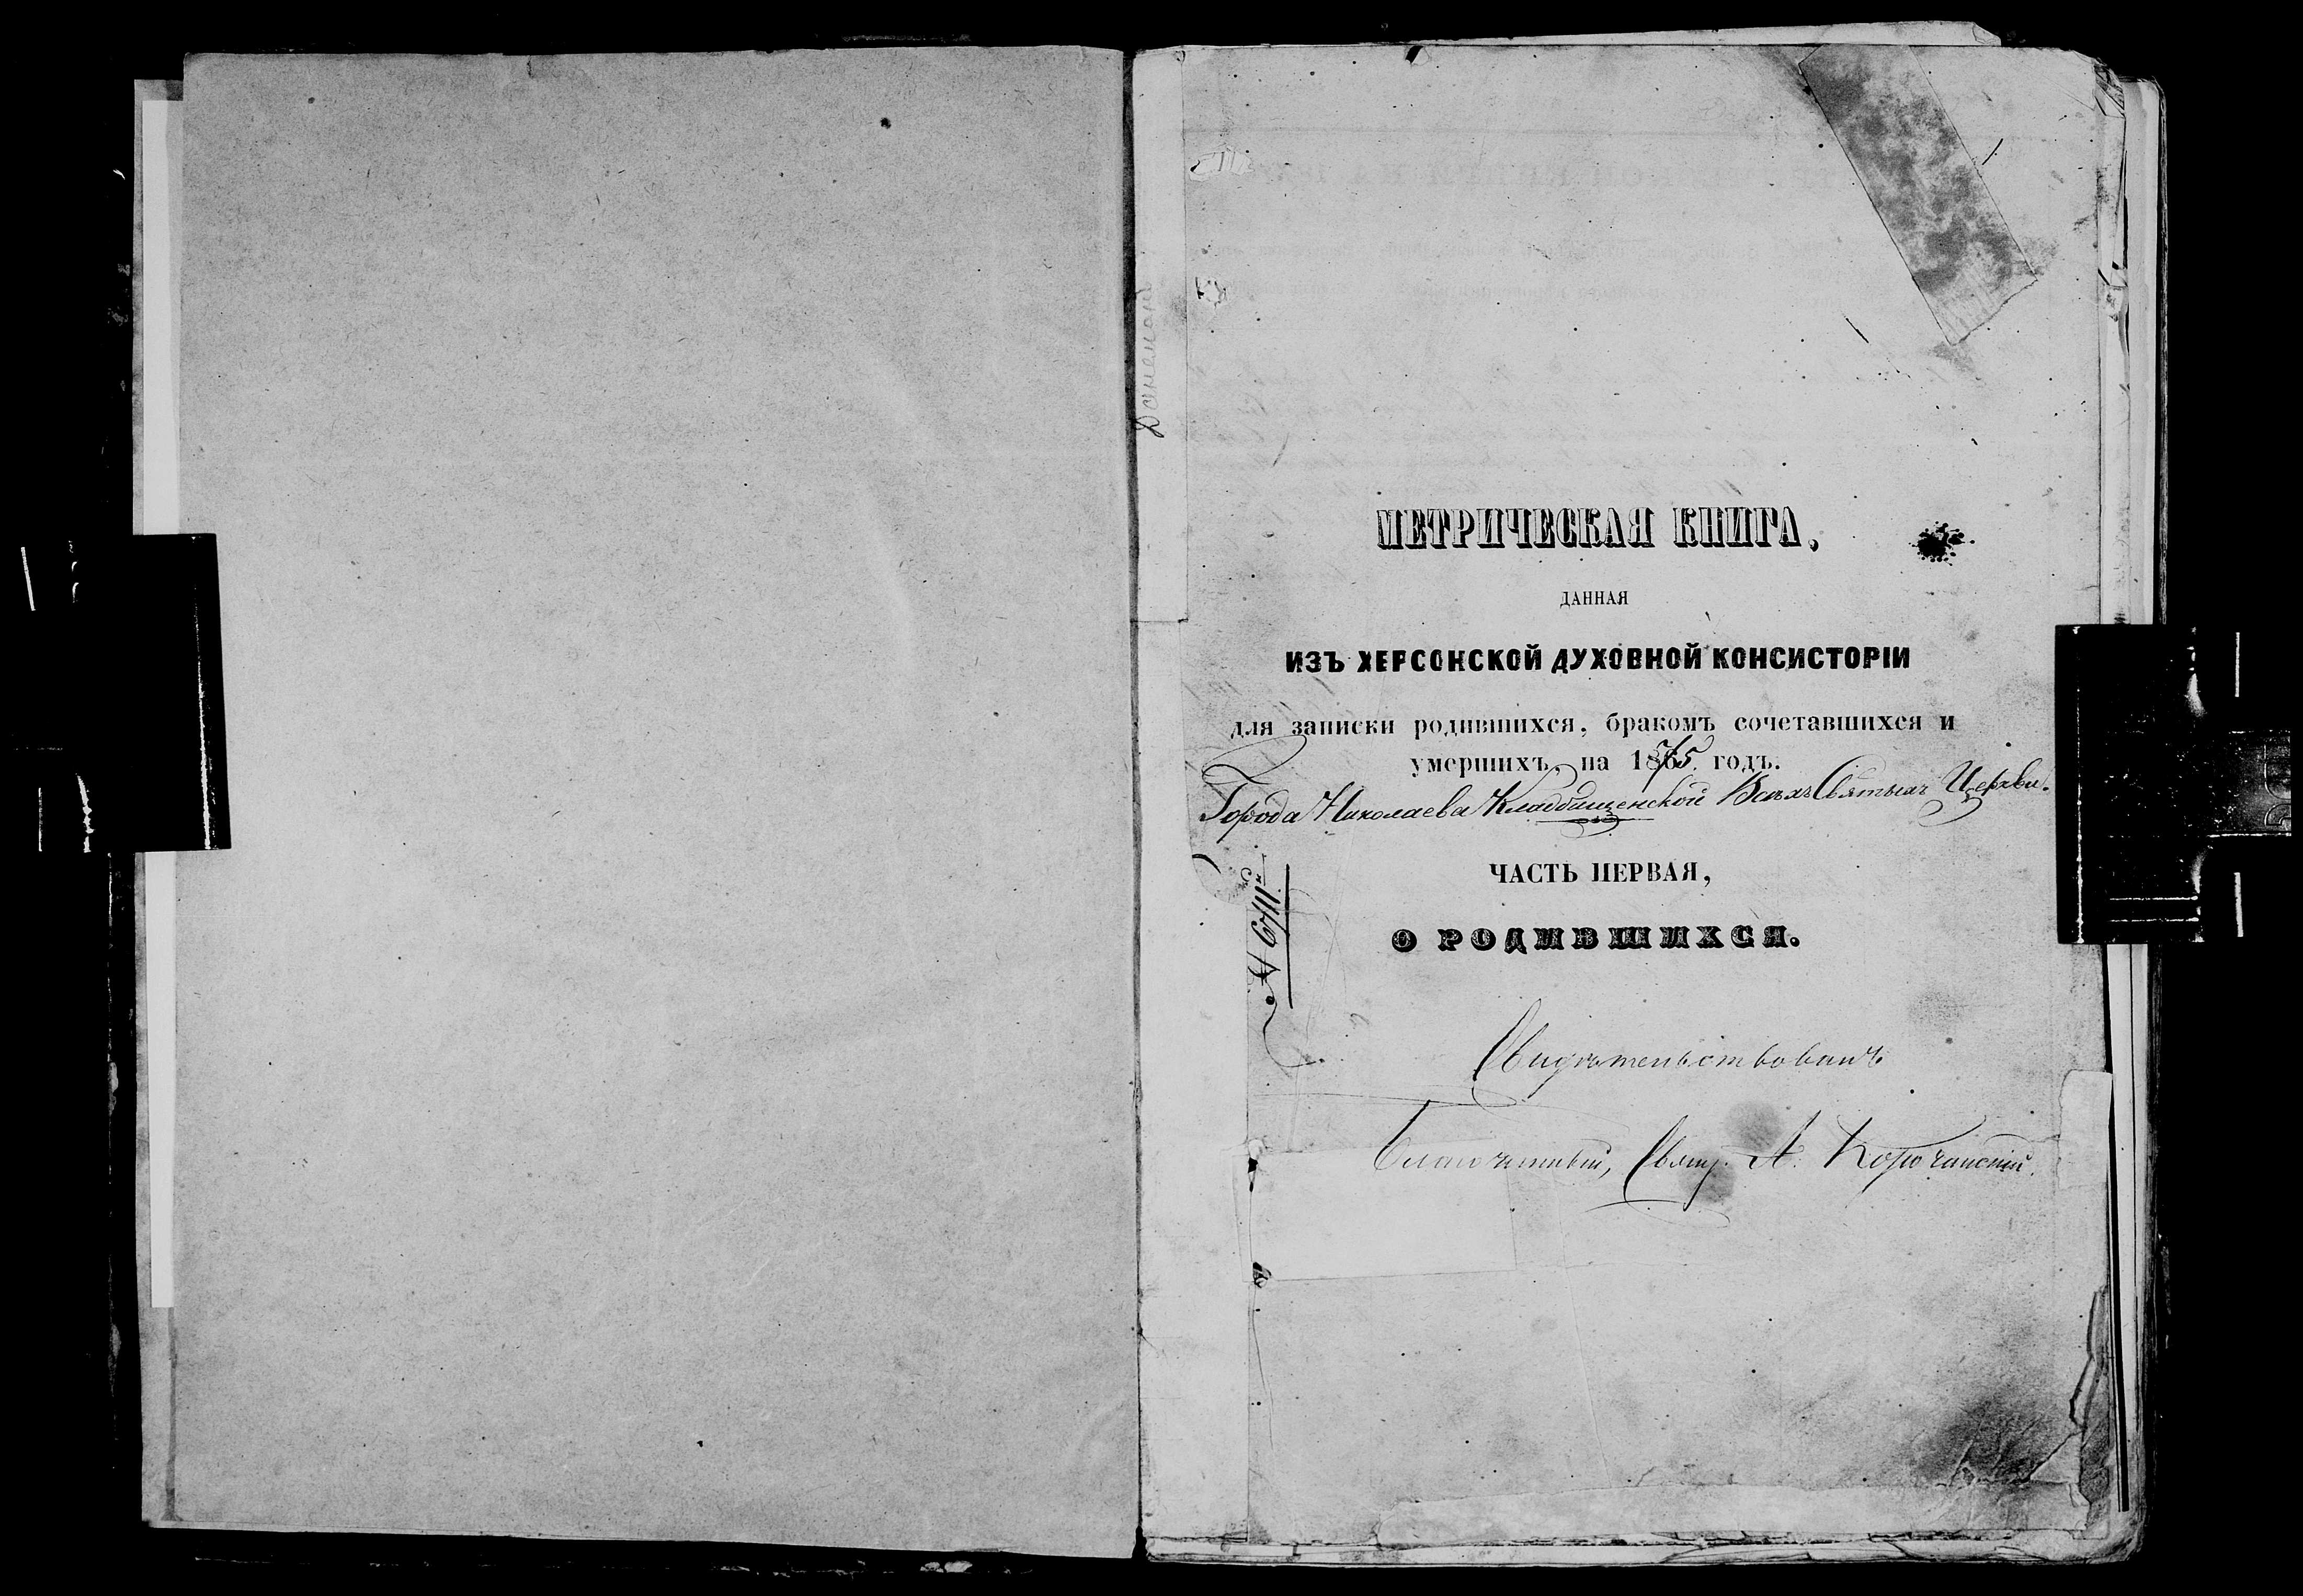 МЕТРИЧЕСКАЯ КНИГА,
ДАННАЯ
ИЗЪ ХЕРСОНСКОЙ ДУХОВНОЙ КОНСИСТОРІИ
для записки родившихся, бракомъ сочетавшихся и
умершихъ, на 1875 годъ.
Города Николаева Кладбищенской Всѣхъ Святыхъ Церкви.
ЧАСТЬ ПЕРВАЯ,
О РОДИВШИХСЯ.
Свидѣтельствовалъ
Благочинный, Свящ. А. Корочанскій.